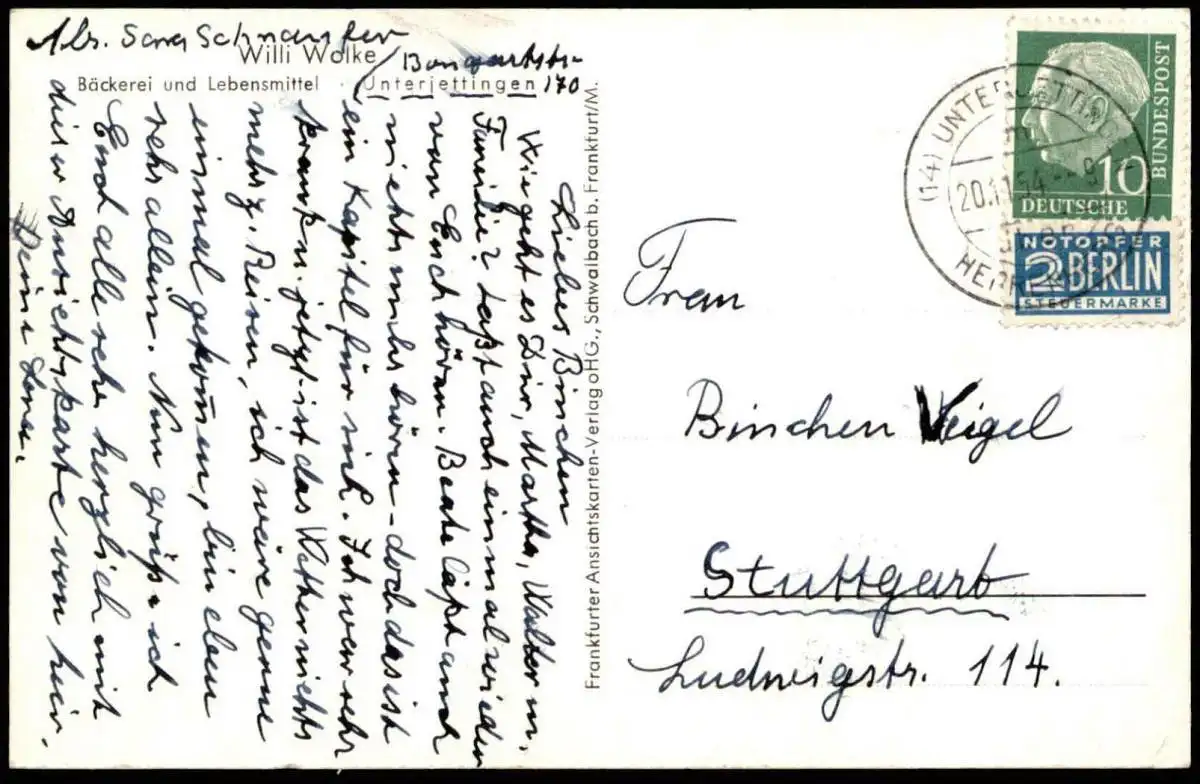 Abs.
Willi Wolke
Bäckerei und Lebensmittel · Unterjettingen 170
Liebes Binchen
Wie geht es Dir, Martha, Walter u.
Familie? Laßt auch einmal wieder
von Euch hören. Beate läßt auch
nichts mehr hören - doch das ist
ein Kapitel für sich. Ich war sehr
krank u. jetzt ist das Wetter nichts
mehr z. Reisen, ich wäre gerne
einmal gekommen, bin eben
sehr allein. Nun grüße ich
Euch alle sehr herzlich mit
dieser Ansichtskarte von hier.
Deine
Frankfurter Ansichtskarten-Verlag oHG., Schwalbach b. Frankfurt/M.
(14) UNTERJETTINGEN
20.11.54 - 9
HERRENBERG
10
DEUTSCHE
BUNDESPOST
NOTOPFER
2 BERLIN
STEUERMARKE
Frau
Binchen Weigel
Stuttgart
Ludwigstr. 114.